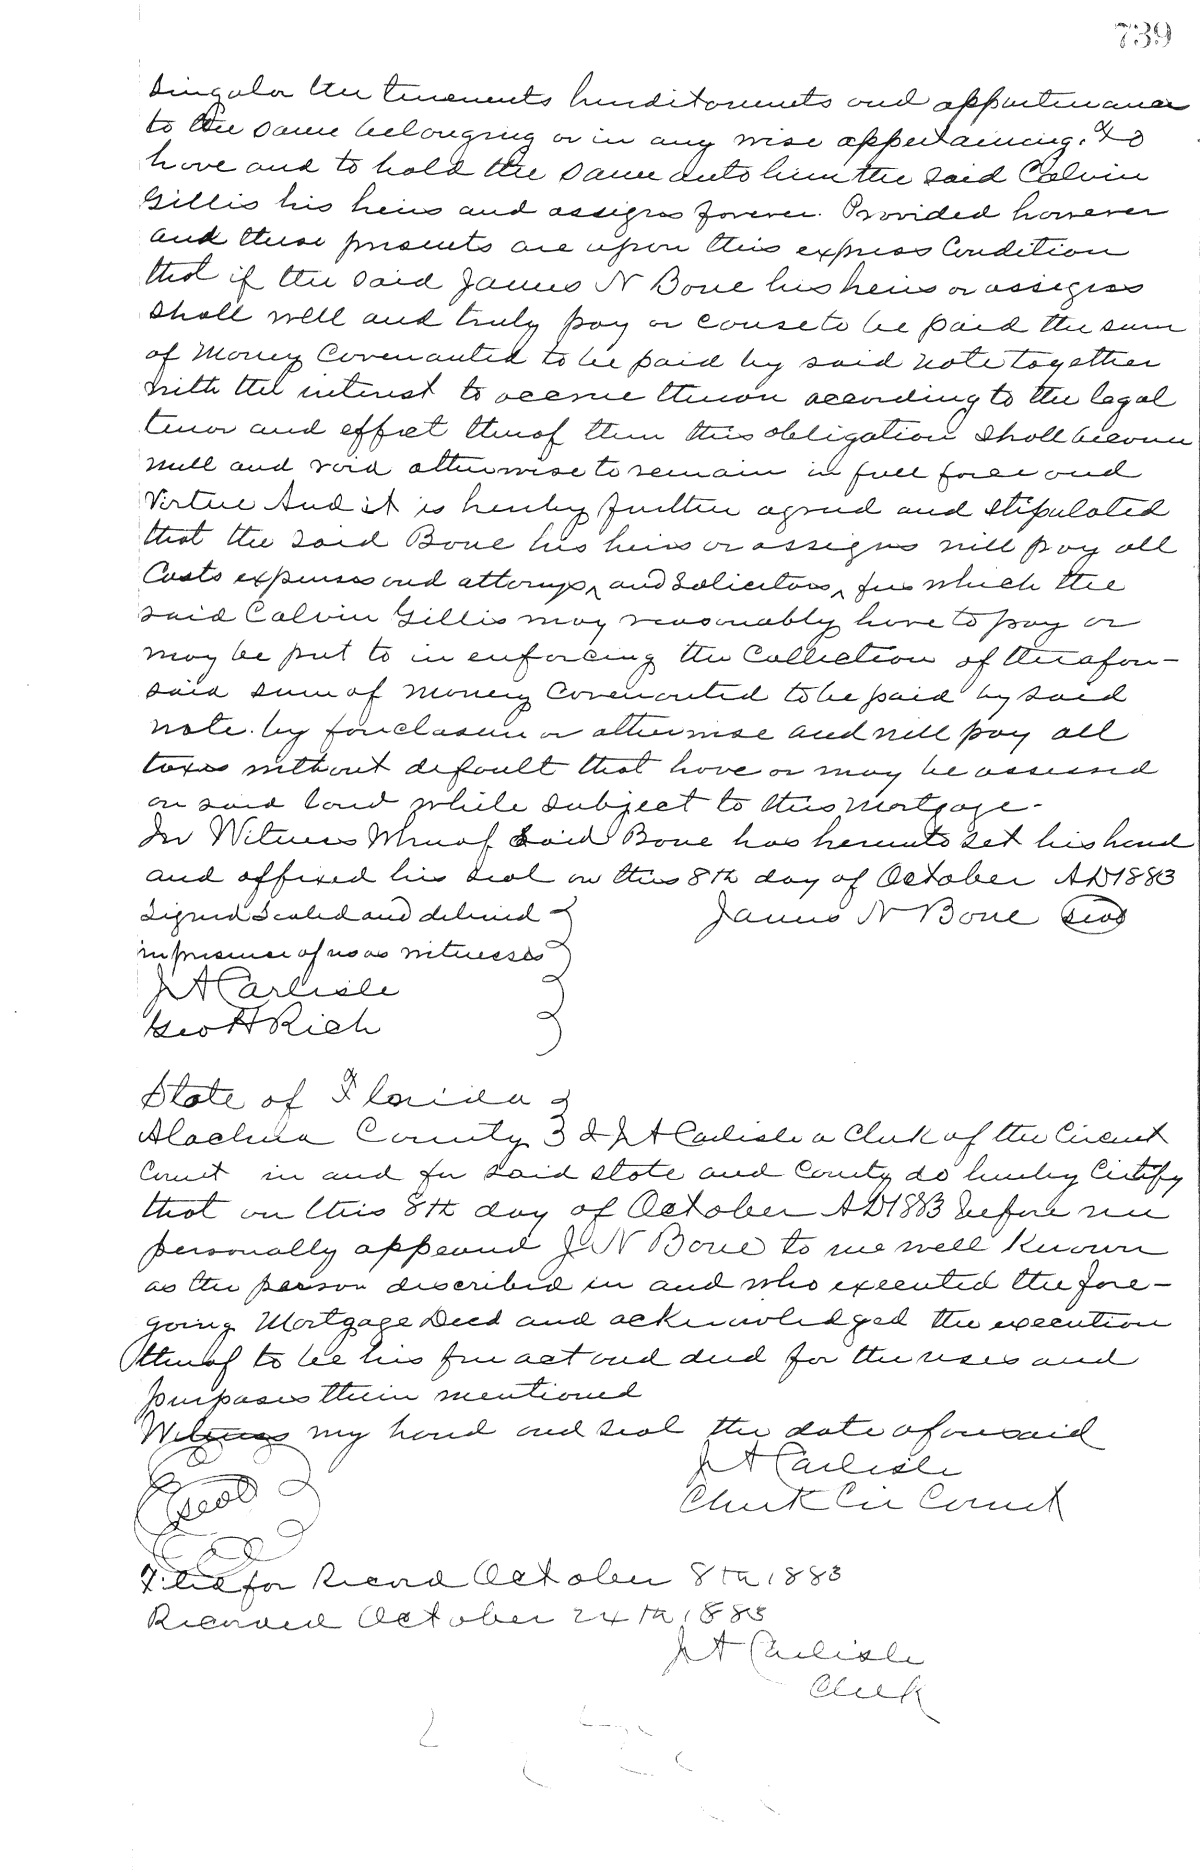 739
Singular the tenements hereditaments and appurtenances
to the same belonging or in any wise appertaining. To
have and to hold the same unto him the said Calvin
Gillis his heirs and assigns forever. Provided however
and these presents are upon this express Condition
that if the said James N Bone his heirs or assigns
shall well and truly pay or cause to be paid the sum
of Money Covenanted to be paid by said note together
with the interest to accrue thereon according to the legal
tenor and effect thereof then this obligation shall become
null and void otherwise to remain in full force and
Virtue And it is hereby further agreed and stipulated
that the said Bone his heirs or assigns will pay all
Costs expenses and attorneys ‸ and Solicitors ‸ fees which the
said Calvin Gillis may reasonably have to pay or
may be put to in enforcing the Collection of the afore-
said sum of money Covenanted to be paid by said
note. by foreclosure or otherwise and will pay all
taxes without default that have or may be assessed
on said land while subject to this Mortgage-
In Witness Whereof Said Bone has hereunto set his hand
and affixed his seal on this 8th day of October AD1883
Signed Sealed and delivered James N Bone Seal
in presence of us as witnesses
J A Carlisle
Geo H Rich
State of Florida
Alachua County I J A Carlisle a Clerk of the Circuit
Court in and for said State and County do hereby Certify
that on this 8th day of October AD1883 before me
personally appeared J N Bone to me well known
as the person described in and who executed the fore-
going Mortgage Deed and acknowledged the execution
thereof to be his free act and deed for the uses and
purposes therein mentioned
Witness my hand and seal the date aforesaid
J A Carlisle
Seal Clerk Cir Court
Filed for Record October 8th 1883
Recorded October 24th 1883
J A Carlisle
Clerk